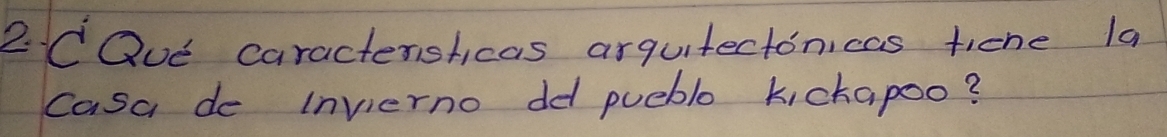 2. ¿Qué características arquitectónicas tiene la
casa de invierno del pueblo kickapoo?